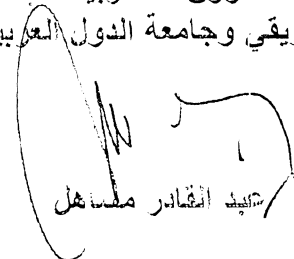 يقي وجامعة الدول العربي
عبد القادر مساهل